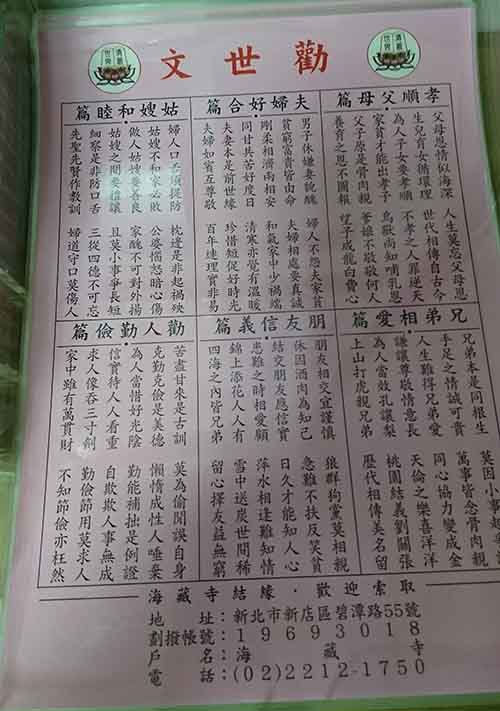 勸世文
孝順父母篇
父母恩情似海深 人生莫忘父母恩
生兒育女循環理 世代相傳自古今
為人子女要孝順 不孝之人罪逆天
家貧才能出孝子 鳥獸尚知哺乳恩
父子原是骨肉親 爹娘不敬敬何人
養育之恩不圖報 望子成龍白費心
夫婦好合篇
男子休嫌妻說醜 婦人不怨夫家貧
貧窮富貴皆由命 夫婦相處要真誠
剛柔相濟兩相安 和氣家中少禍端
同甘共苦好度日 清寒亦覺有溫暖
夫妻本是前世緣 珍惜短促好時光
夫婦如賓互尊敬 百年連理實非易
姑嫂和睦篇
婦人口舌須提防 枕邊是非起禍殃
姑嫂不和家必敗 公婆惱怒暗心傷
做人姑嫂要善良 家醜不可對外揚
姑嫂之間要禮讓 且莫小事爭長短
細察是非防口舌 三從四德不可忘
先聖先賢作教訓 婦道守口莫傷人
兄弟相愛篇
兄弟本是同根生 莫因小事
手足之情誠可貴 萬事皆念骨肉親
人生難得兄弟愛 同心協力變成金
謙讓尊敬情意長 天倫之樂喜洋洋
為人當效孔讓梨 桃園結義劉關張
上山打虎親兄弟 歷代相傳美名留
朋友信義篇
朋友相交宜謹慎 狼群狗黨莫相親
休因酒肉為知己 急難不扶反笑貧
結交朋友應信實 日久才能知人心
患難之時相愛顧 萍水相逢難知情
錦上添花人人有 雪中送炭世間稀
四海之內皆兄弟 留心擇友益無窮
勸人勤儉篇
苦盡甘來是古訓 莫為偷閒誤自身
克勤克儉是美德 懶惰成性人唾棄
為人當惜好光陰 勤能補拙是例證
信實待人人看重 自欺欺人事無成
求人像吞三寸劍 勤儉節用莫求人
家中雖有萬貫財 不知節儉亦枉然
海藏寺結緣・歡迎索取
地址：新北市新店區碧潭路55號
劃撥帳號：19693018
戶名：海藏寺
電話：(02)2212-1750